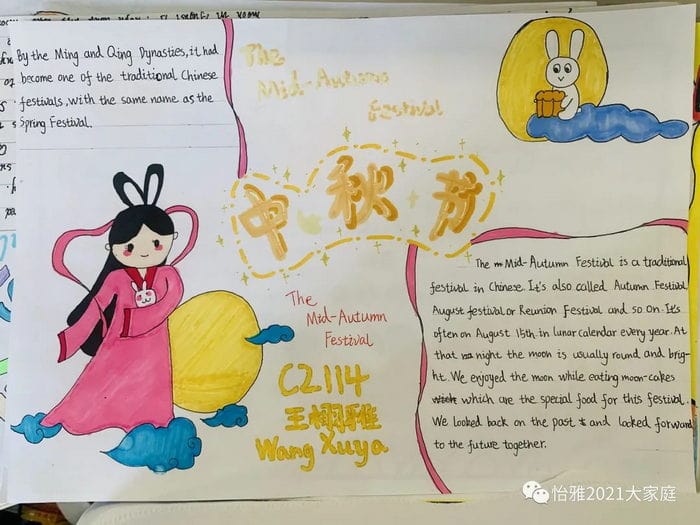 By the Ming and Qing Dynasties, it had
become one of the traditional Chinese
festivals, with the same name as the
Spring Festival.
The
Mid-Autumn
Festival
中秋节
The
Mid-Autumn
Festival
C2114
王栩雅
Wang Xuya
The Mid-Autumn Festival is a traditional
festival in Chinese. It's also called Autumn Festival,
August festival or Reunion Festival and so on. It's
often on August 15th in lunar calendar every year. At
that night the moon is usually round and brig-
ht. We enjoyed the moon while eating moon-cakes
which are the special food for this festival.
We looked back on the past and looked forward
to the future together.
怡雅2021大家庭